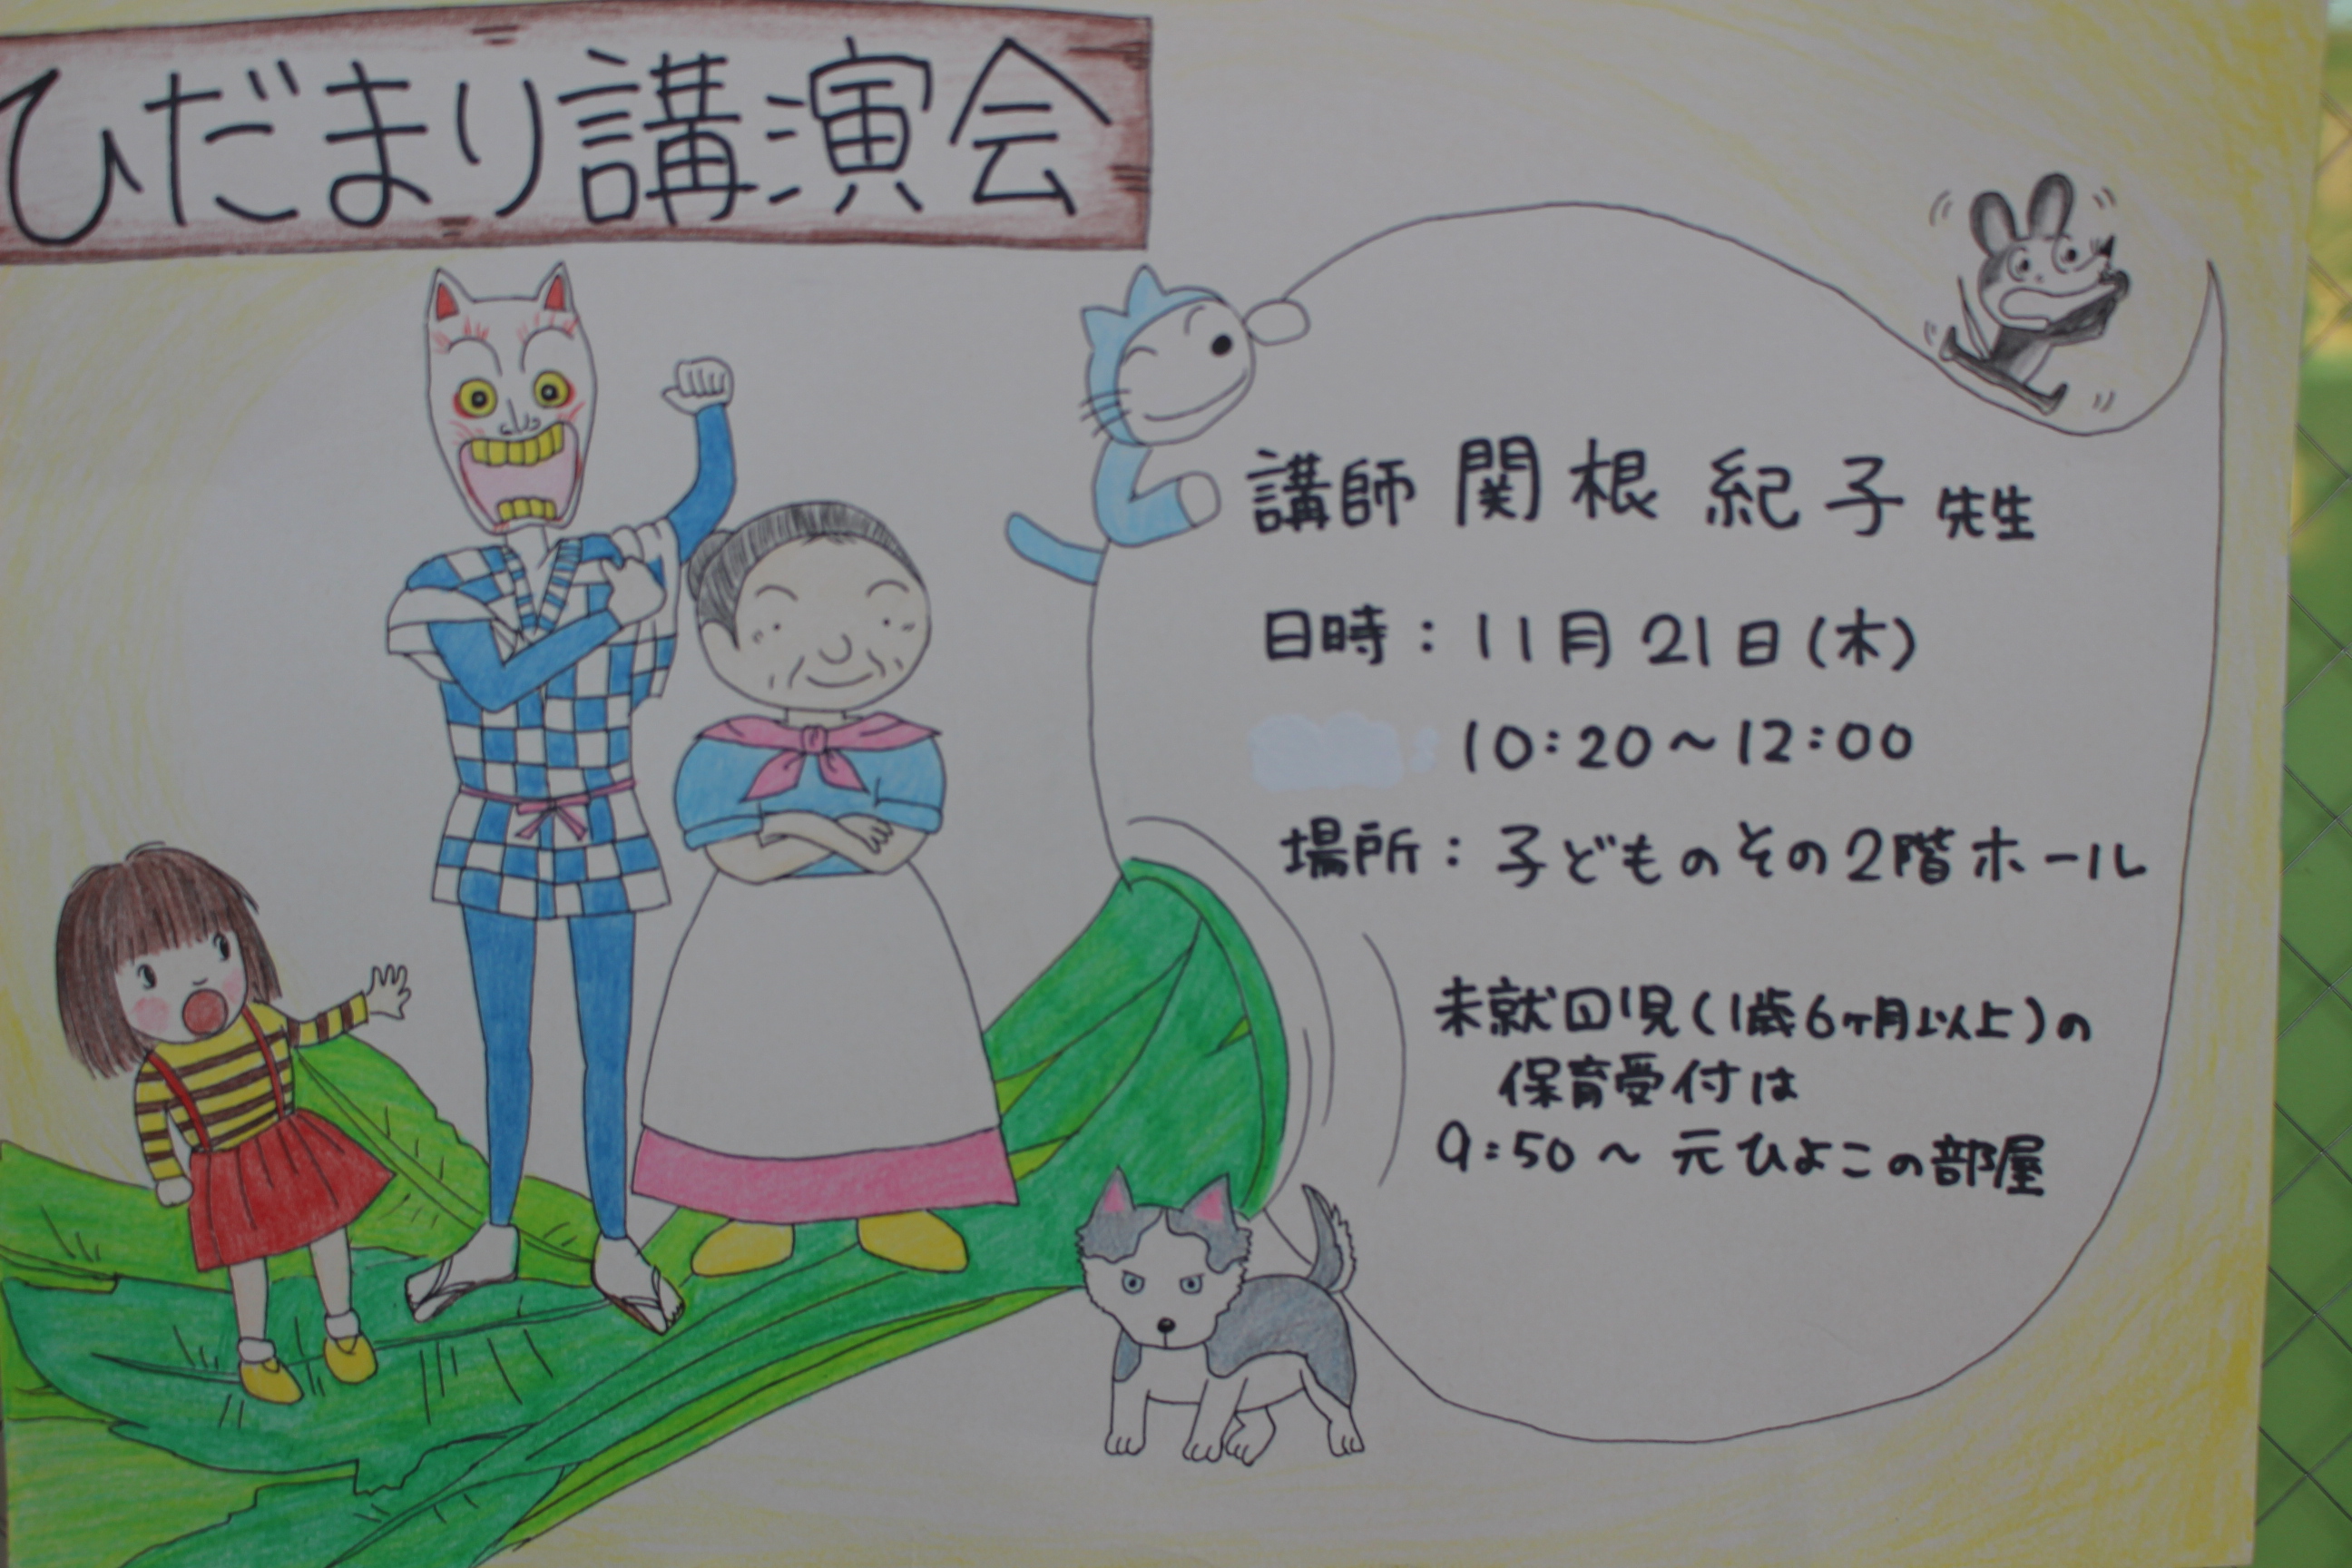 ひだまり講演会
講師 関根 紀子 先生
日時：11月21日(木)
10:20～12:00
場所：子どものその2階ホール
未就園児(1歳6ヶ月以上)の
保育受付は
9:50～元ひよこの部屋